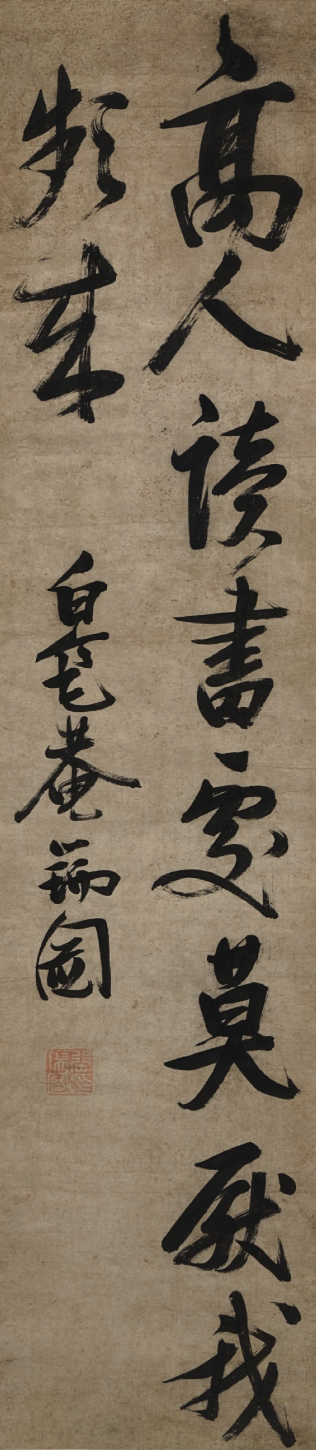 高人讀書處莫厭我
頻來 白毫菴瑞圖